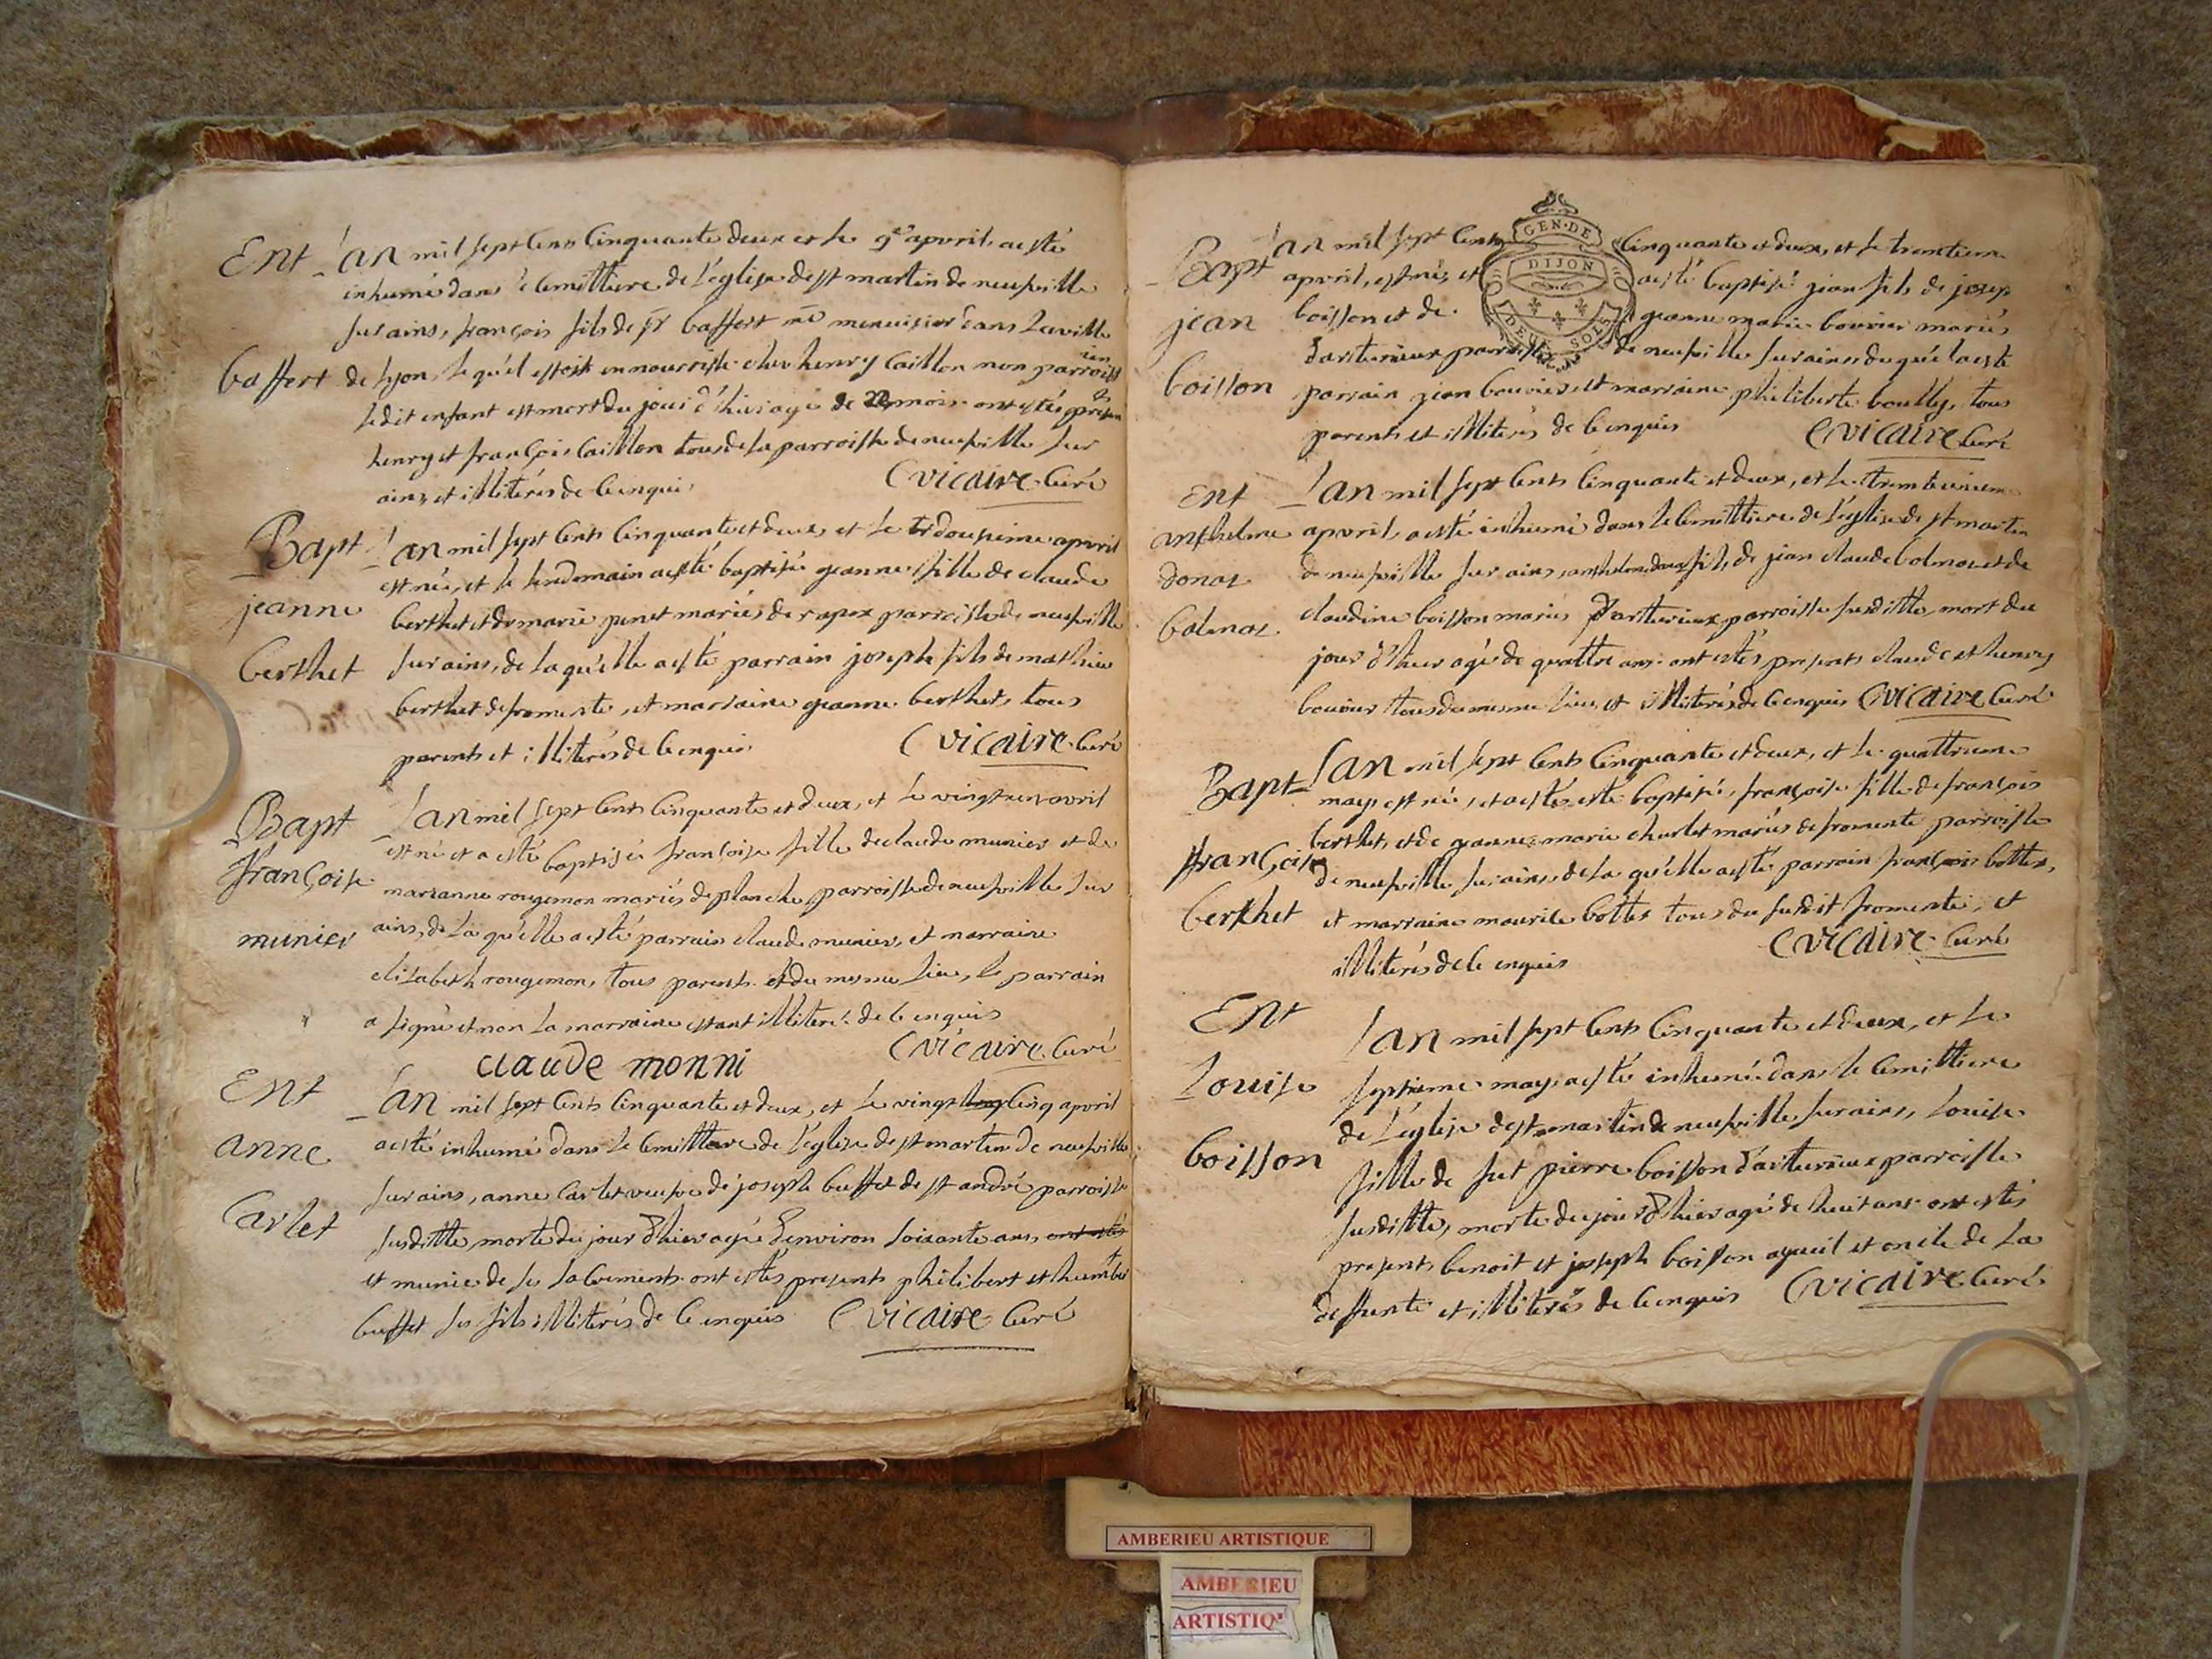 Ent L'an mil sept cents cinquante deux et le 9e apvril a esté
inhumé dans le cemittiere de l'église de st martin de neufville
sur ains, françois fils de baffert menuisier dans la ville
baffert de lyon, le qu'el estoit en nourrisse chez henry caillon mon parroissien
le dit enfant est mort du jour d'hier agé de mois ont estés presents
henry et françois caillon tous de la parroisse de neufville sur
ains, et illiterés de ce enquis. C vicaire curé
Bapt L'an mil sept cents cinquante et deux, et le douzieme apvril
est née, et le lendemain a esté baptisée jeanne fille de claude
jeanne berthet et de marie mariés de parroisse de neufville
berthet sur ains, de la qu'elle a esté parrain joseph fils de mathieu
berthet de fromente, et marraine jeanne berthet, tous
parents et illiterés de ce enquis C vicaire curé
Bapt L'an mil sept cents cinquante et deux, et le vingt avril
est né et a esté baptisée françoise fille de claude munier et de
françoise marianne rougemon mariés de planche parroisse de neufville sur
munier ains, de la qu'elle a esté parrain claude munier, et marraine
elizabeth rougemon, tous parents et du mesme lieu, le parrain
a signé et non la marraine estant illiteré de ce enquis
claude monni C vicaire curé
Ent L'an mil sept cents cinquante et deux, et le vingt cinq apvril
anne a esté inhumé dans le cemittiere de l'église de st martin de neufville
sur ains, anne carlet veufve de joseph buffet de st andré parroisse
Carlet susditte, morte du jour d'hier agée d'environ soixante ans, ont estés
et munie de ses sacrements ont estés presents philibert et humbert
buffet ses fils illiterés de ce enquis C vicaire curé
Bapt L'an mil sept cents cinquante et deux, et le trentieme
apvril, est né, et a esté baptisé jean fils de josep
jean boisson et de jeanne marie bouvier mariés
d'arturieux parroisse de neufville sur ains du qu'el a esté
boisson parrain jean bouvier et marraine philiberte boully, tous
parents et illiterés de ce enquis C vicaire curé
GEN·DE
DIJON
DEUX SOLS
Ent L'an mil sept cents cinquante et deux, et le trente unieme
anthelme apvril a esté inhumé dans le cemittiere de l'église de st martin
donat de neufville sur ains, anthelme donat fils de jean claude balmat et de
balmat claudine boisson mariés d'arturieux parroisse susditte, mort du
jour d'hier agé de quattre ans ont estés presents claude et henry
bouvier tous du mesme lieu et illiterés de ce enquis C vicaire curé
Bapt L'an mil sept cents cinquante et deux, et le quattrieme
may est née, et a estés esté baptisée, françoise fille de françois
berthet, et de jeanne marie charlet mariés de fromente parroisse
françoise de neufville sur ains de la qu'elle a esté parrain françois bottex,
berthet et marraine maurice bottex tous du susdit fromente, et
illiterés de ce enquis C vicaire curé
Ent L'an mil sept cents cinquante et deux, et le
Louise septieme may a esté inhumée dans le cemittiere
de l'église de st martin de neufville sur ains, Louise
boisson fille de fut pierre boisson d'arturieux parroisse
susditte, morte du jour d'hier agé de huit ans ont estés
presents benoit et joseph boisson ayeuil et oncle de la
deffunte et illiterés de ce enquis C vicaire curé
AMBERIEU ARTISTIQUE
AMBERIEU
ARTISTIQ